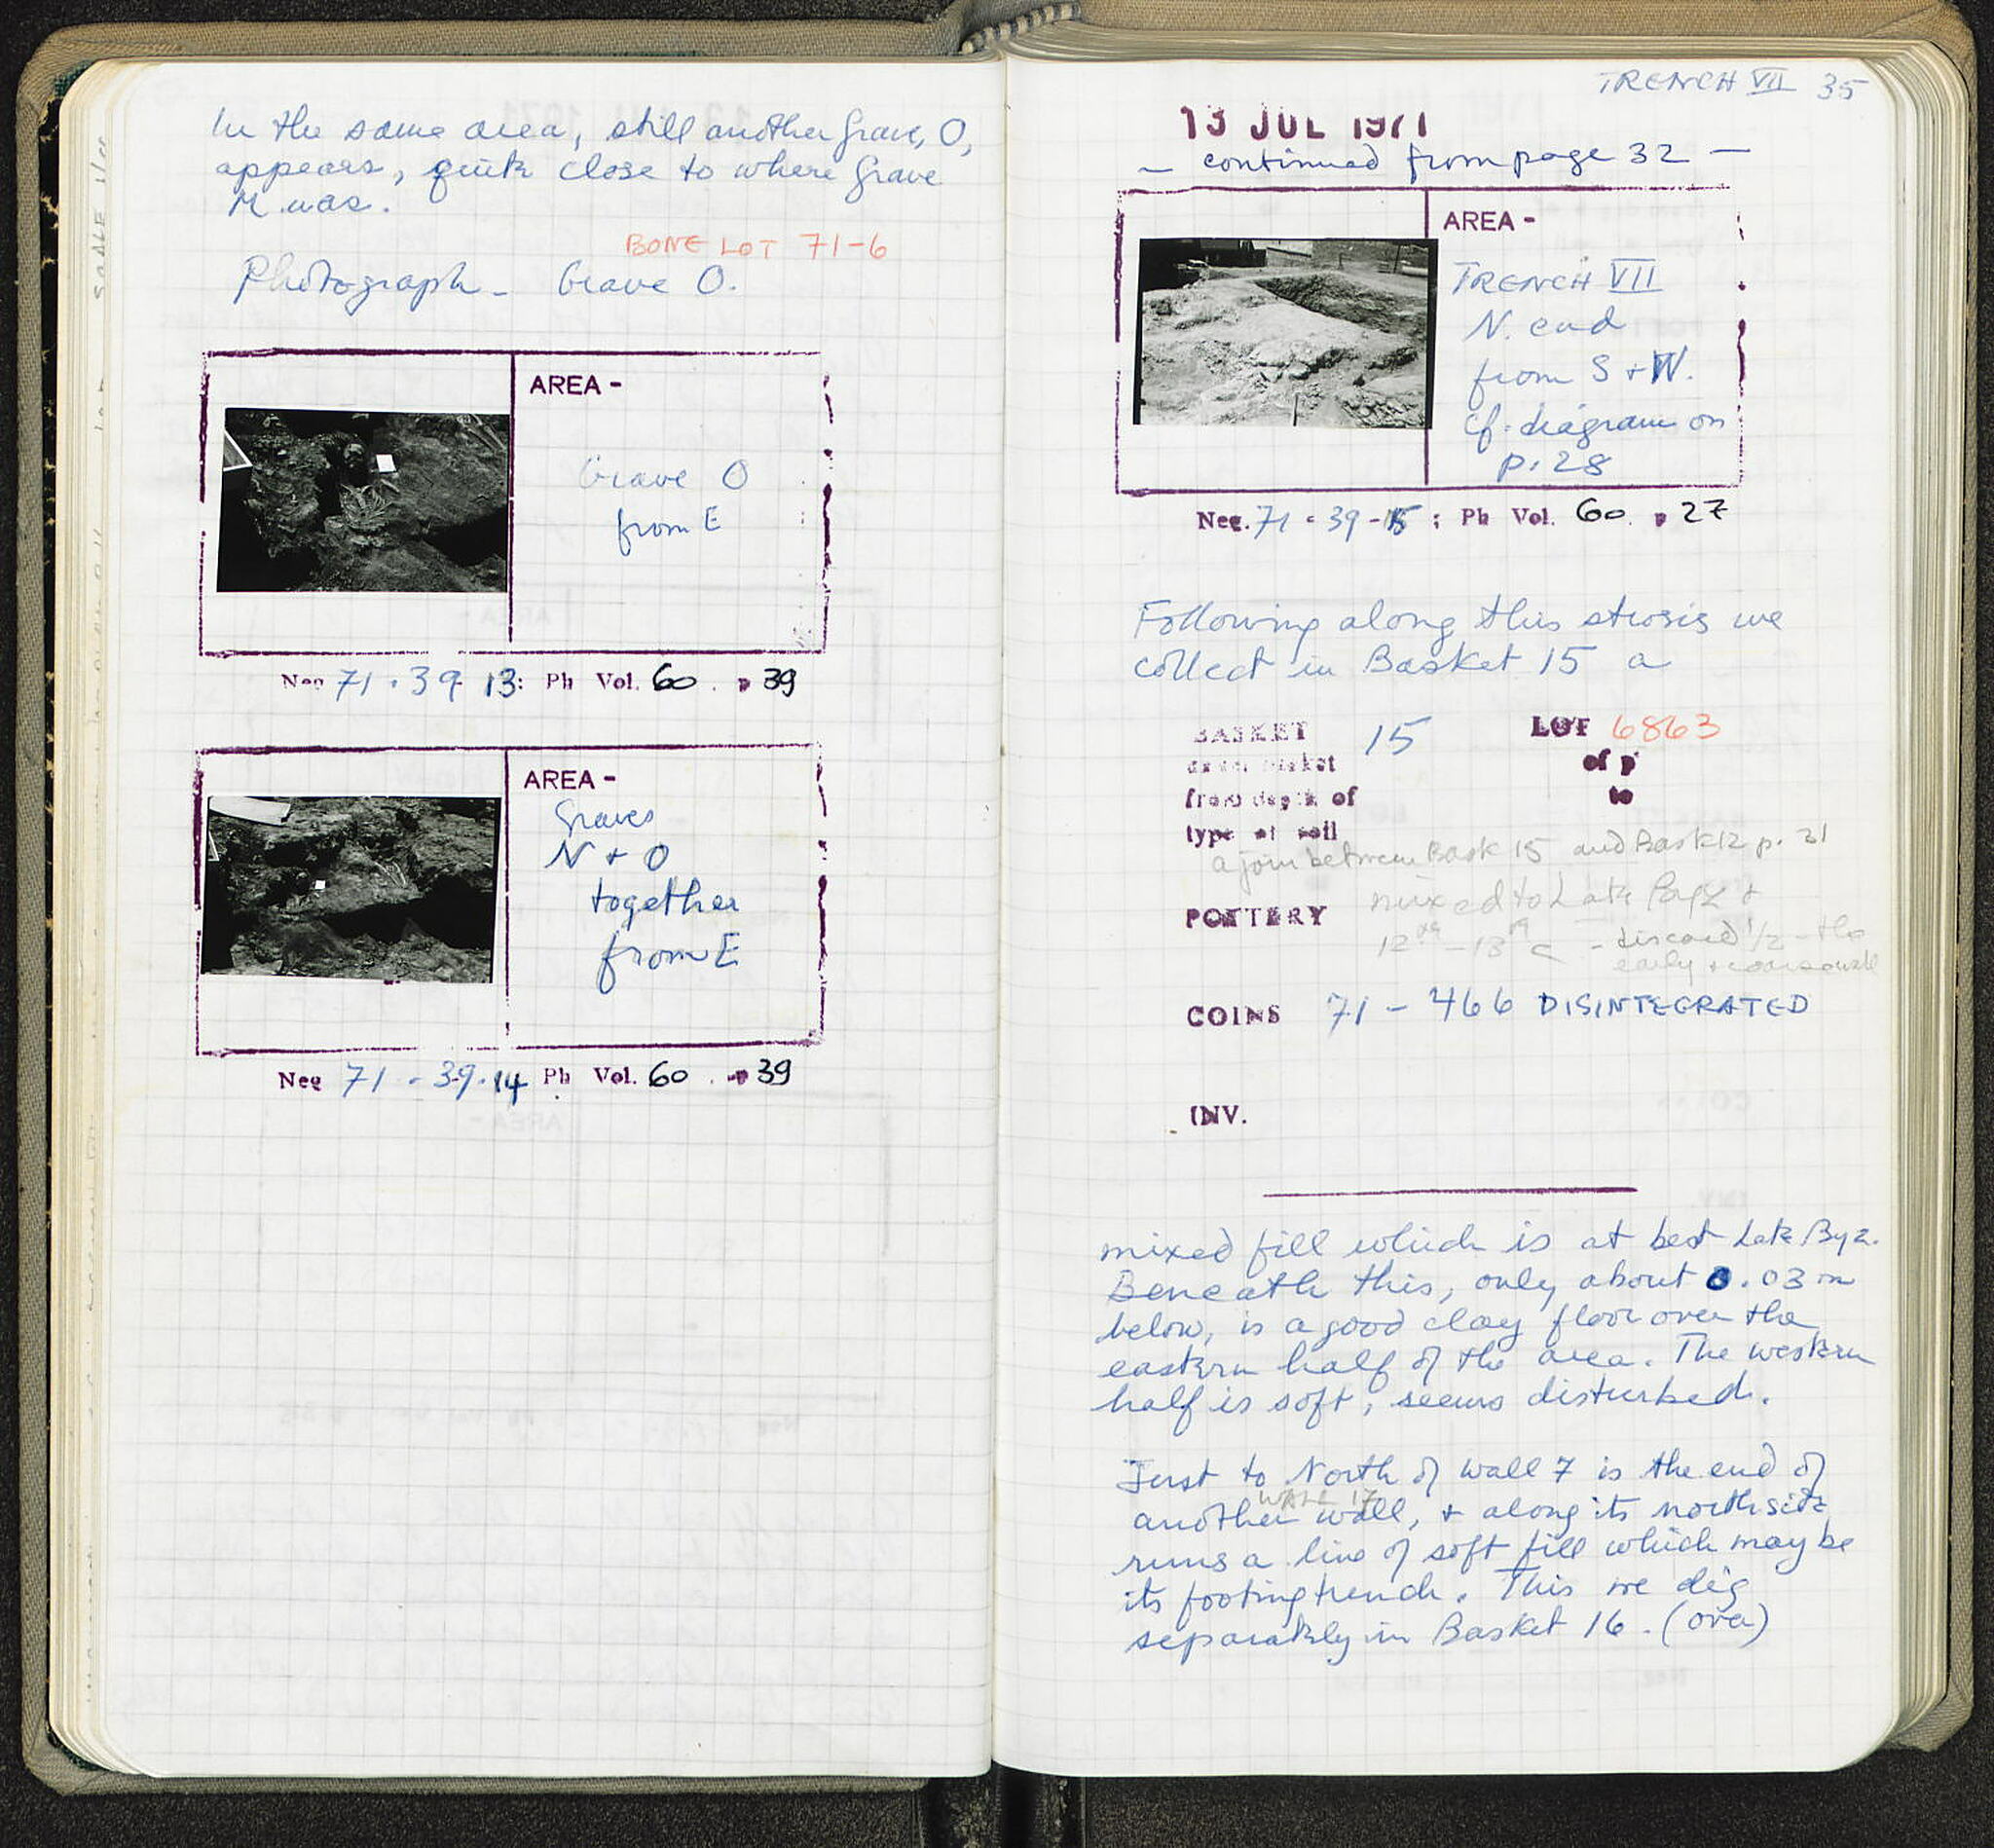 In the same area, still another Grave, O,
appears, quite close to where Grave
M was.
BONE LOT 71-6
Photograph - Grave O.
AREA -
Grave O
from E
Neg 71 - 39 13: Ph Vol. 60 . p 39
AREA -
Graves
N + O
together
from E
Neg 71 - 39 - 14 Ph Vol. 60 . p 39
TRENCH VII 35
13 JUL 1971
- continued from page 32 -
AREA -
TRENCH VII
N. end
from S + W.
cf. diagram on
p. 28
Neg. 71 - 39 - 15 ; Ph Vol. 60 . p 27
Following along this strosis we
collect in Basket 15 a
BASKET 15 LOT 6863
basket of p
from depth of to
type of soil
a join between Bask 15 and Bask 12 p. 31
POTTERY mixed to Late Byz +
12th - 13th c - discard 1/2 - the
early + coarseware
COINS 71 - 466 DISINTEGRATED
INV.
mixed fill which is at best Late Byz.
Beneath this, only about 0.03 m
below, is a good clay floor over the
eastern half of the area. The western
half is soft, seems disturbed.
Just to North of wall 7 is the end of
WALL 17
another wall, + along its north side
runs a line of soft fill which may be
its footing trench. This we dig
separately in Basket 16. (over)